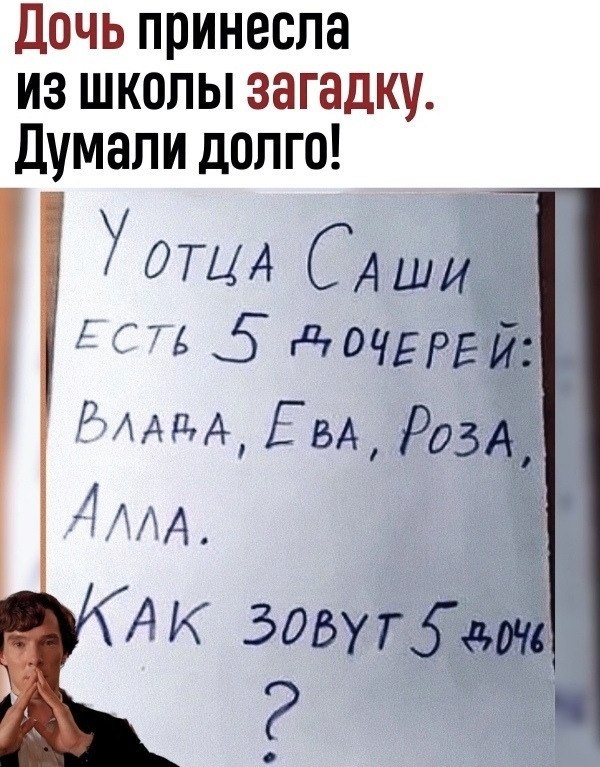 Дочь принесла
из школы загадку.
Думали долго!
У отца Саши
есть 5 дочерей:
Влада, Ева, Роза,
Алла.
Как зовут 5 дочь
?